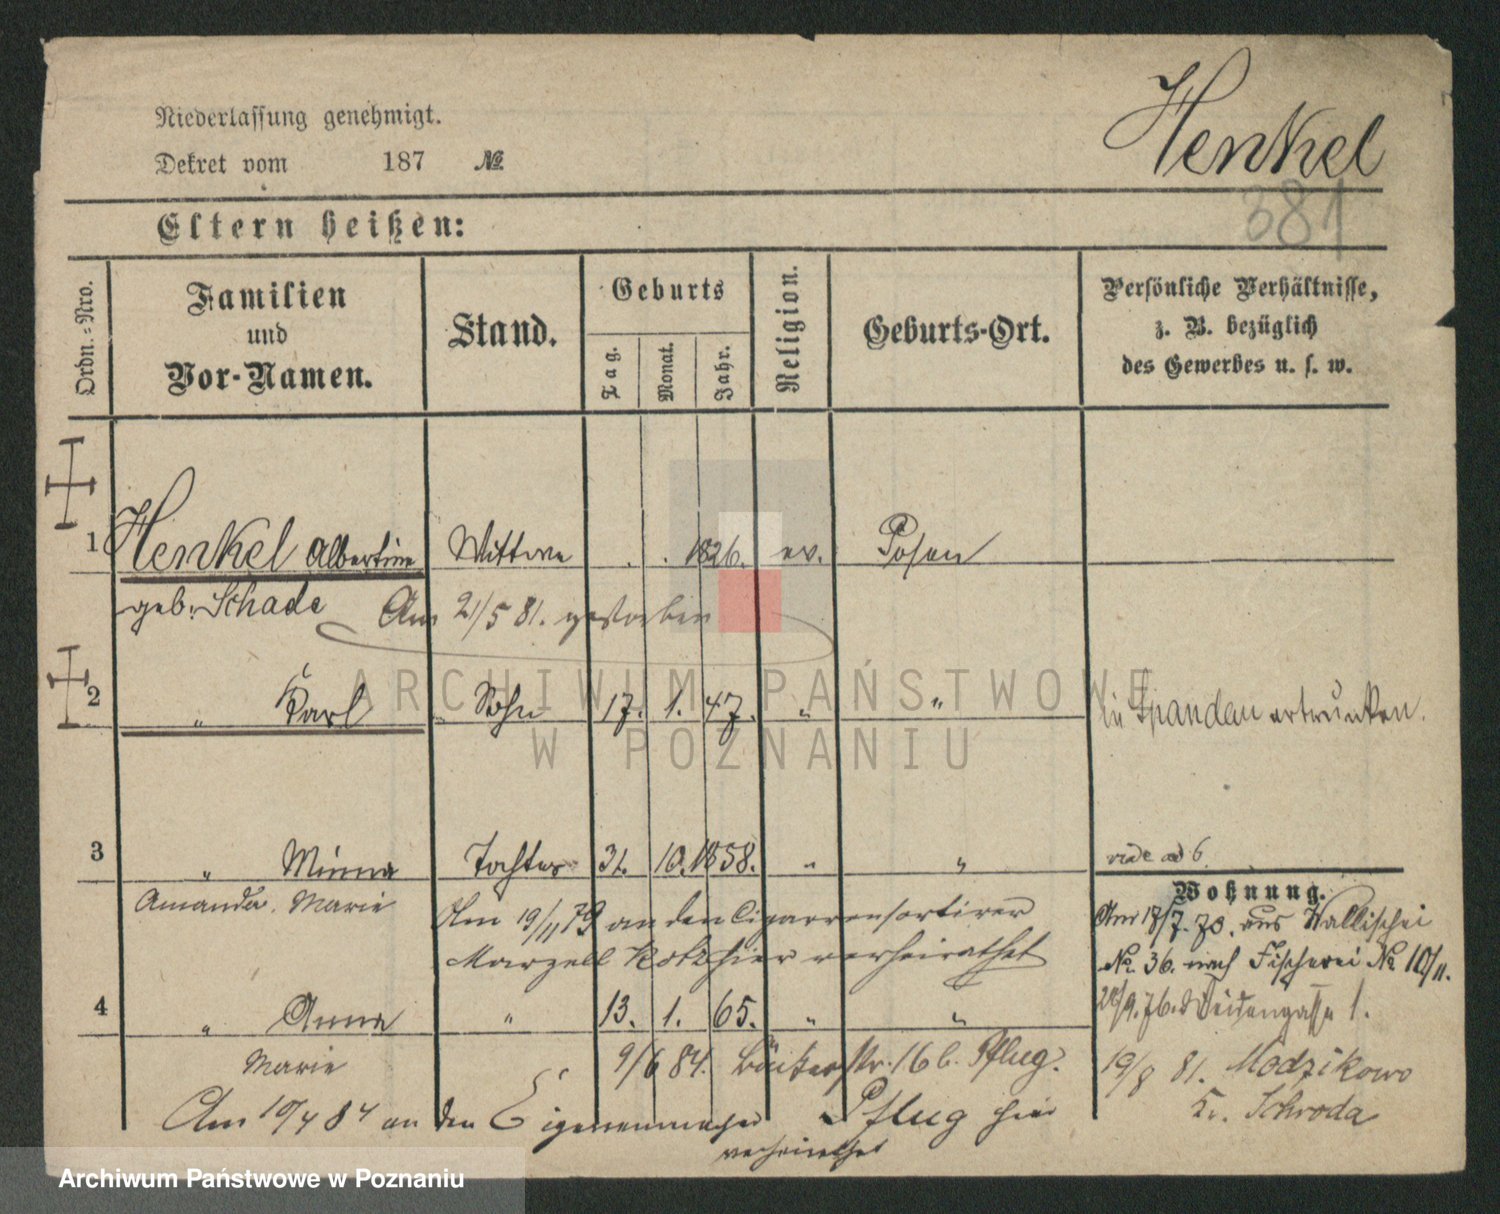 Niederlassung genehmigt.
Dekret vom 187 №
Henkel
381
Eltern heißen:
Ordn.=Nro.
Familien und Vor-Namen.
Stand.
Geburts
Tag.
Monat.
Jahr.
Religion.
Geburts-Ort.
Persönliche Verhältnisse,
z. B. bezüglich
des Gewerbes u. s. w.
1 Henkel Albertine Wittwe . . 1826. ev. Posen
geb. Schade Am 21/5 81. gestorben
2 " Karl Sohn 17. 1. 47. " " in Spandau ertrunken.
3 " Minna Tochter 31. 10. 1858. " " vide ad 6.
Amanda. Marie Am 19/11 79 an den Cigarrensortirer
Marzell Kotz hier verheirathet
4 " Anna " 13. 1. 65. " "
Marie 9/6 84. Bäckerstr. 16 b. Pflug.
Am 10/4 84 an den Cigarrenmacher Pflug hier
verheirathet
Wohnung.
Am 18/7. 70. aus Wallischei
No. 36. nach Fischerei No 10/11.
/9. 76. Weidengasse 1.
19/8 81. Modzikowo
Kr. Schroda
ARCHIWUM PAŃSTWOWE
W POZNANIU
Archiwum Państwowe w Poznaniu